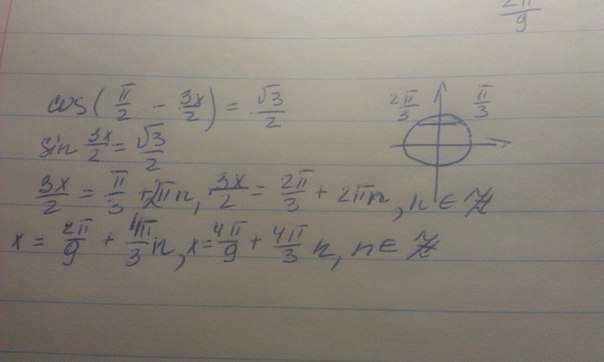 2π/9
cos(π/2 - 3x/2) = √3/2
2π/3 π/3
sin 3x/2 = √3/2
3x/2 = π/3 + 2πn, 3x/2 = 2π/3 + 2πn, n ∈ ℤ
x = 2π/9 + 4π/3 n, x = 4π/9 + 4π/3 n, n ∈ ℤ